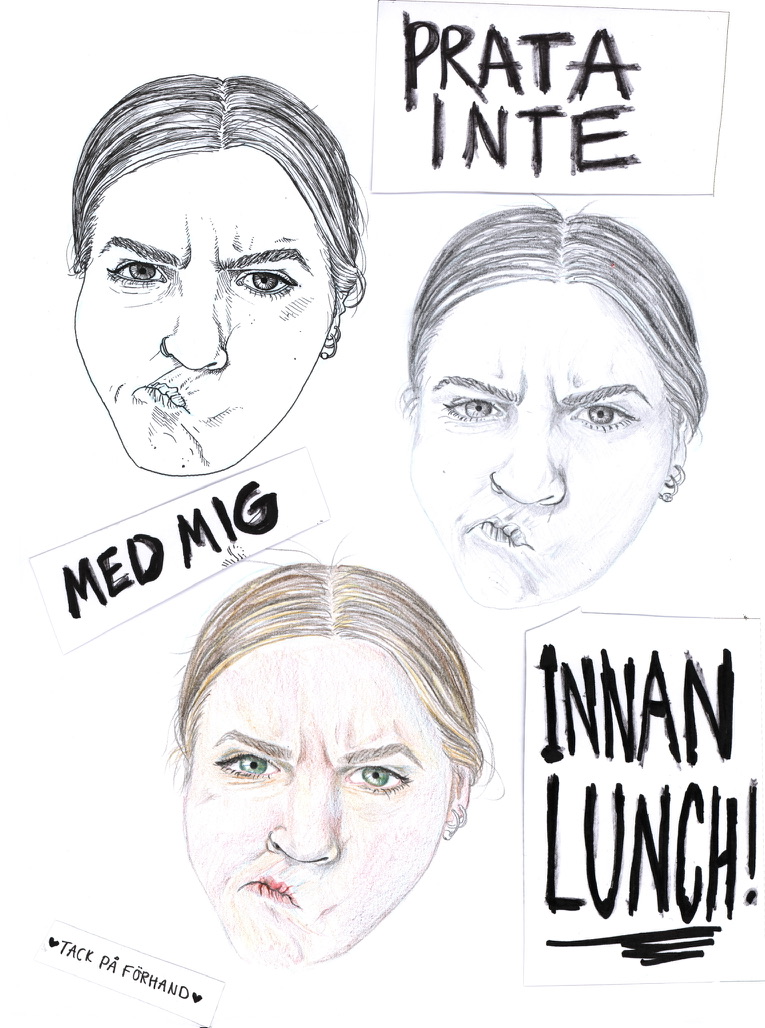 PRATA
INTE
MED MIG
INNAN
LUNCH!
♥TACK PÅ FÖRHAND♥